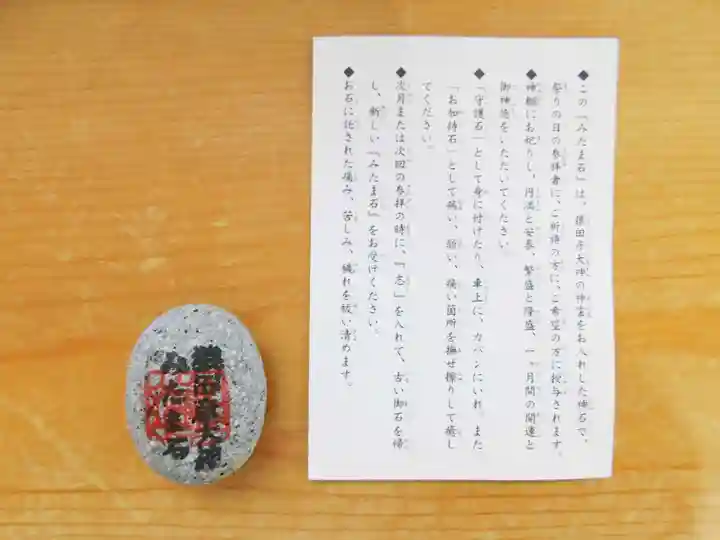 ◆この『みたま石』は、猿田彦大神の神霊をお入れした神石で、
祭りの日の参拝者に、ご祈祷の方に、ご希望の方に授与されます。
◆神棚にお祀りし、円満と安泰、繁盛と隆盛、一ヶ月間の開運と
御神徳をいただいてください。
◆「守護石」として身に付けたり、車上に、カバンにいれ、また
「お加持石」として病い、弱い、痛い箇所を撫ぜ擦りして癒し
てください。
◆次月または次回の参拝の時に、『志』を入れて、古い御石を帰
し、新しい『みたま石』をお受けください。
◆お石に託された痛み、苦しみ、穢れを祓い清めます。
猿田彦大神
みたま石